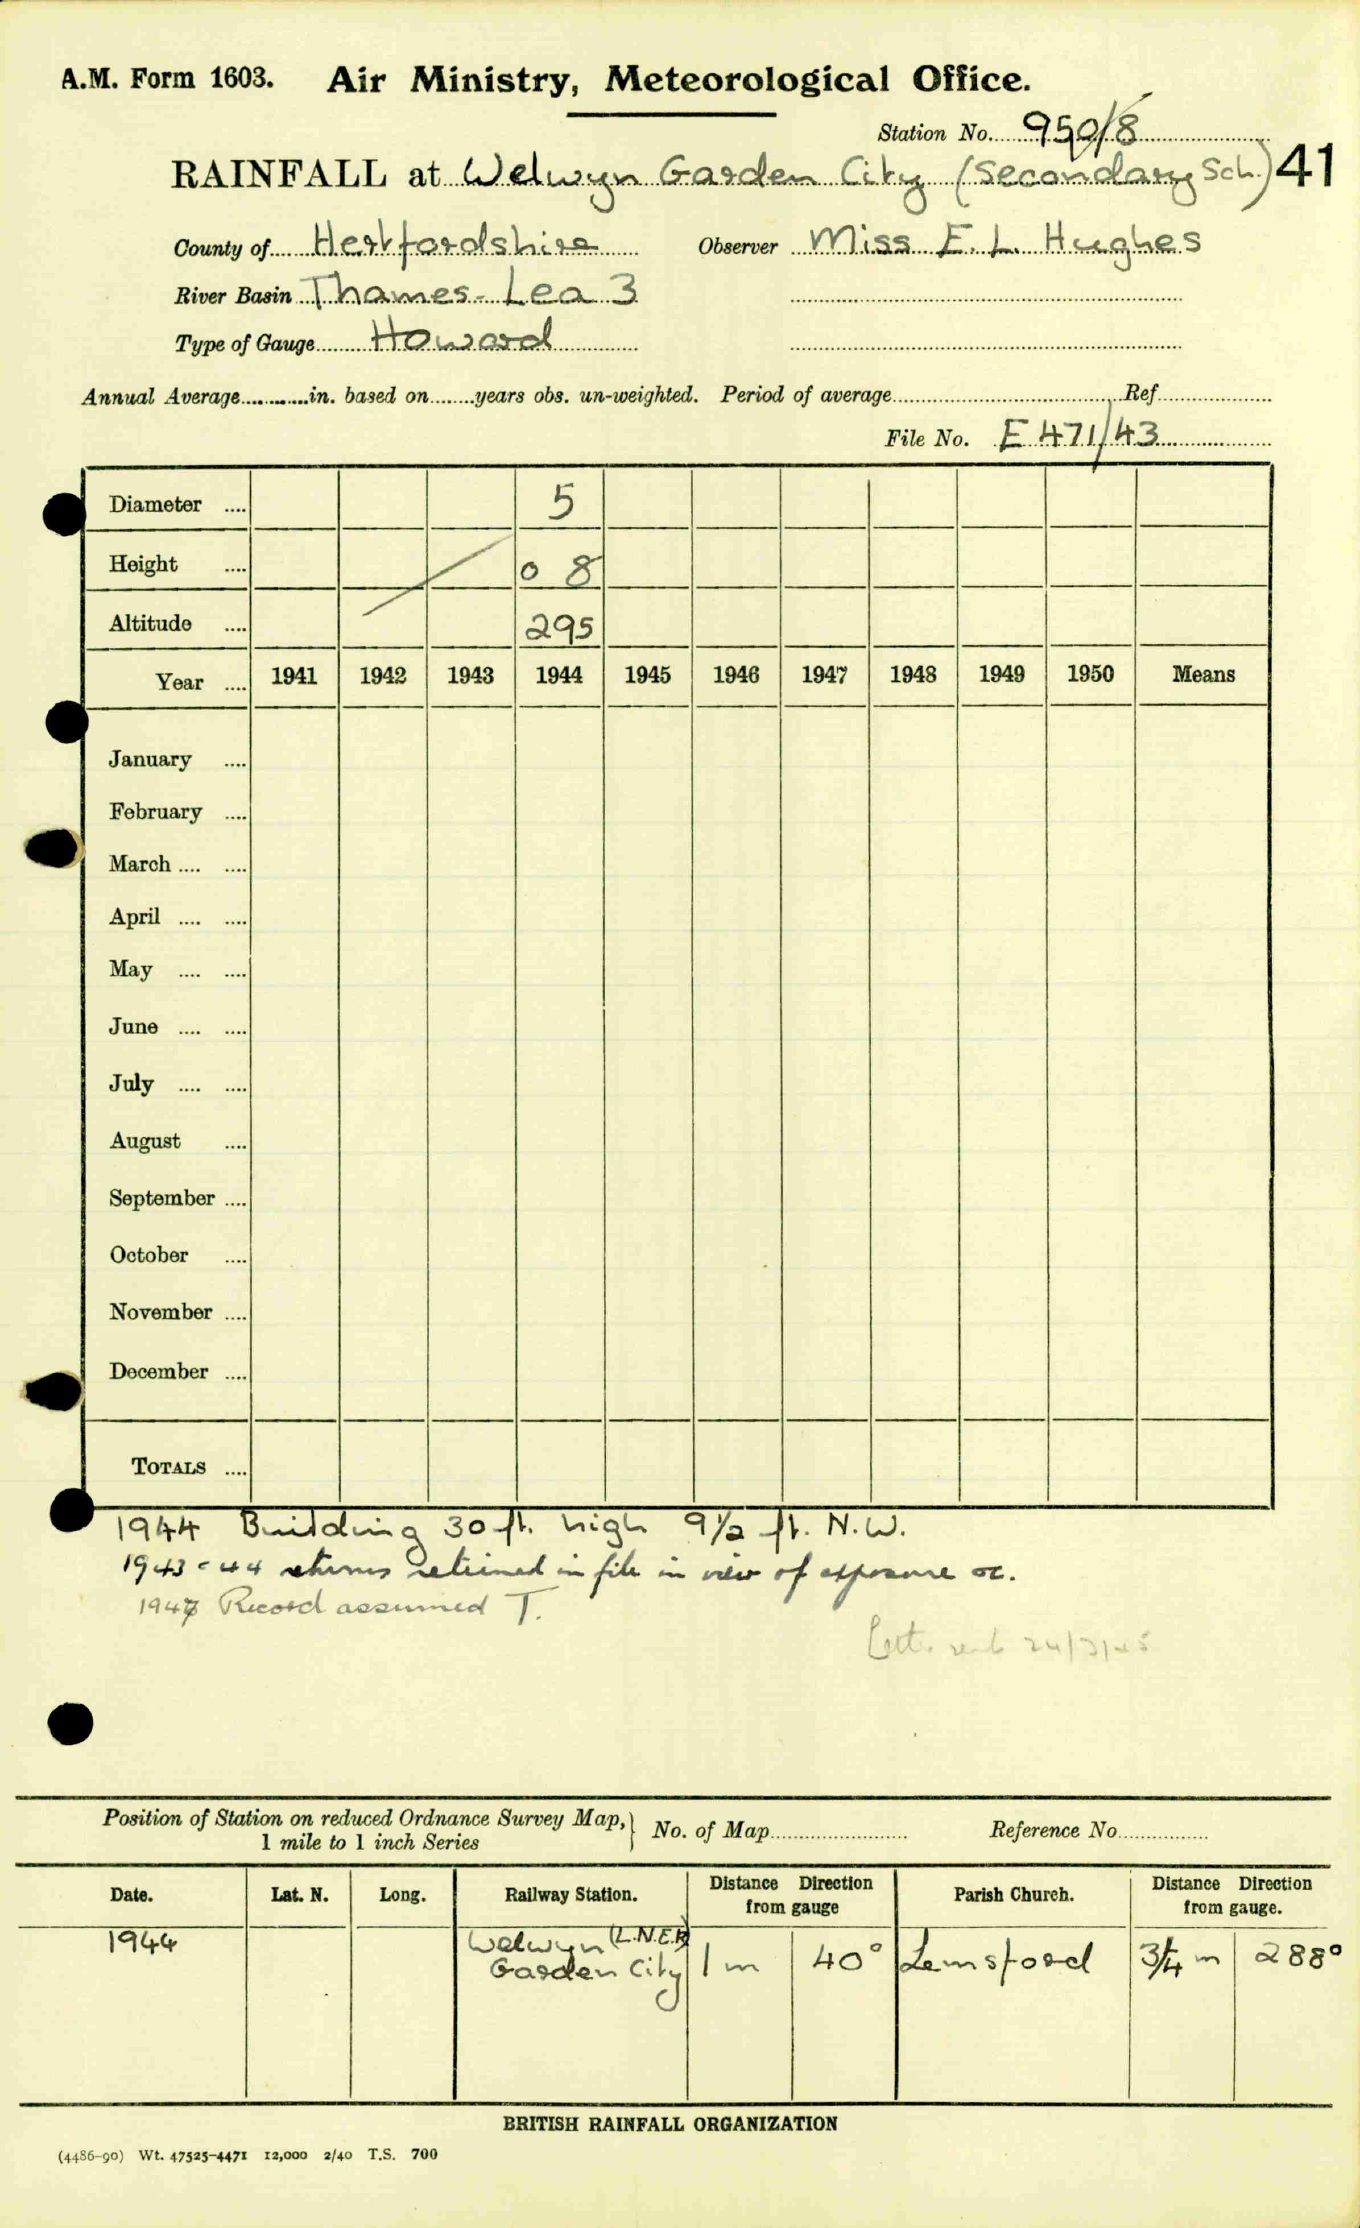 A.M. Form 1603. Air Ministry, Meteorological Office.
Station No. 950/8
RAINFALL at Welwyn Garden City (Secondary Sch.) 41
County of Hertfordshire Observer Miss E. L. Hughes
River Basin Thames - Lea 3
Type of Gauge Howard
Annual Average in. based on years obs. un-weighted. Period of average Ref
File No. E 471/43
Diameter 5
Height 0 8
Altitude 295
Year 1941 1942 1943 1944 1945 1946 1947 1948 1949 1950 Means
January
February
March
April
May
June
July
August
September
October
November
December
TOTALS
1944 Building 30 ft. high 9½ ft. N.W.
1943-44 returns retained in file in view of exposure etc.
1947 Record assumed T.
Letter sent 24/3/45
Position of Station on reduced Ordnance Survey Map, } No. of Map Reference No
1 mile to 1 inch Series
Date. Lat. N. Long. Railway Station. Distance Direction from gauge Parish Church. Distance Direction from gauge.
1944 Welwyn (L.N.E.R) Garden City 1 m 40° Lemsford 3/4 m 288°
BRITISH RAINFALL ORGANIZATION
(4486-90) Wt. 47525-4471 12,000 2/40 T.S. 700